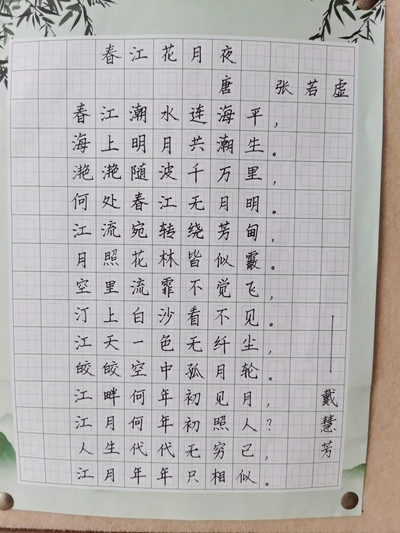 春江花月夜
唐 张若虚
春江潮水连海平，
海上明月共潮生。
滟滟随波千万里，
何处春江无月明。
江流宛转绕芳甸，
月照花林皆似霰。
空里流霜不觉飞，
汀上白沙看不见。
江天一色无纤尘，
皎皎空中孤月轮。
江畔何年初见月，
江月何年初照人？
人生代代无穷已，
江月年年只相似。
——戴慧芳